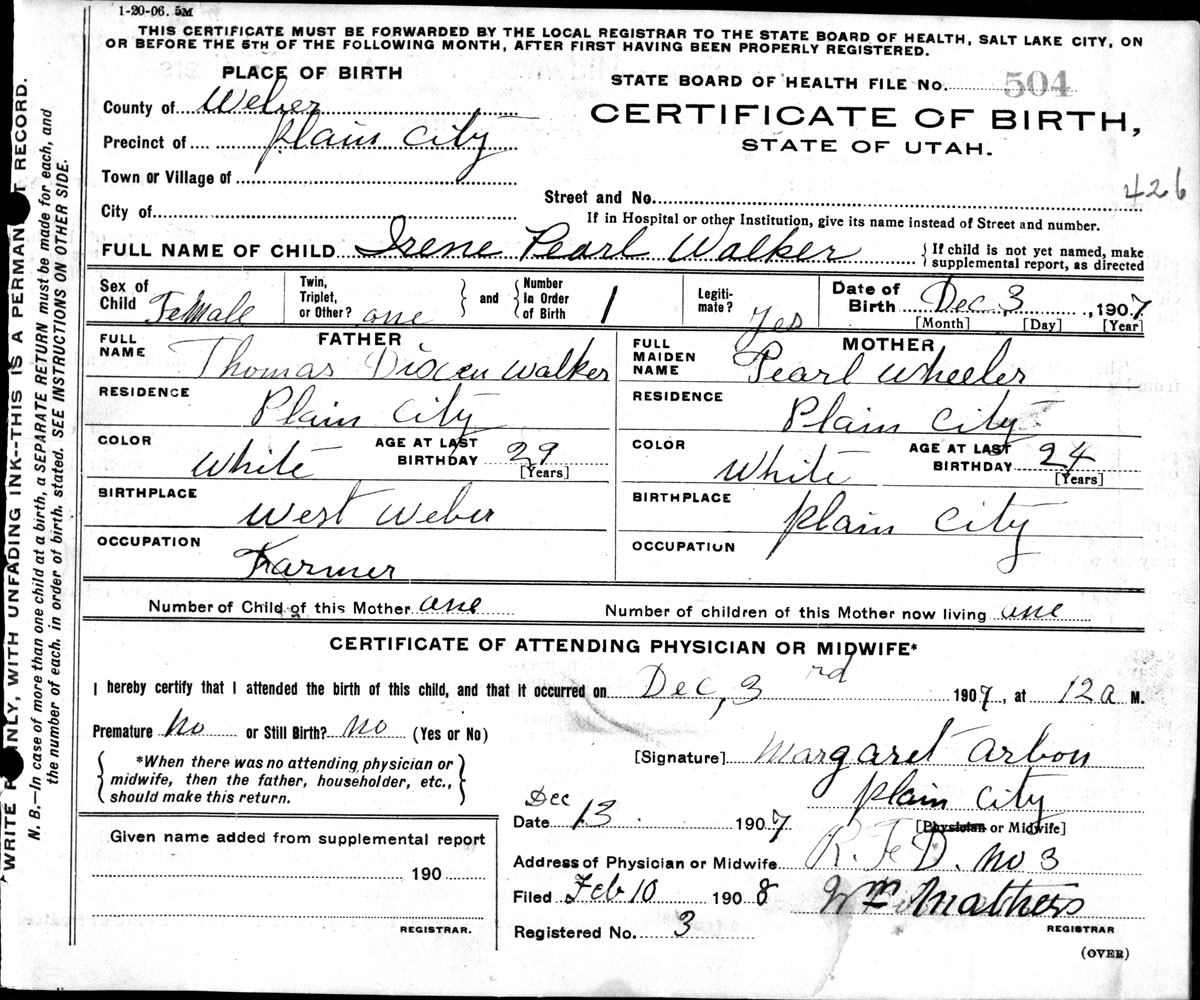 1-20-06. 5M
THIS CERTIFICATE MUST BE FORWARDED BY THE LOCAL REGISTRAR TO THE STATE BOARD OF HEALTH, SALT LAKE CITY, ON
OR BEFORE THE 5TH OF THE FOLLOWING MONTH, AFTER FIRST HAVING BEEN PROPERLY REGISTERED.
PLACE OF BIRTH
County of Weber
Precinct of Plain City
Town or Village of
City of
STATE BOARD OF HEALTH FILE No. 504
CERTIFICATE OF BIRTH,
STATE OF UTAH.
426
Street and No.
If in Hospital or other Institution, give its name instead of Street and number.
FULL NAME OF CHILD Irene Pearl Walker { If child is not yet named, make
supplemental report, as directed
Sex of Child Female
Twin, Triplet, or Other? one } and { Number In Order of Birth 1
Legiti-mate? Yes
Date of Birth Dec, 3, 1907
[Month] [Day] [Year]
FATHER
FULL NAME Thomas Dixen Walker
RESIDENCE Plain City
COLOR White AGE AT LAST BIRTHDAY 29 [Years]
BIRTHPLACE West Weber
OCCUPATION Farmer
MOTHER
FULL MAIDEN NAME Pearl Wheeler
RESIDENCE Plain City
COLOR White AGE AT LAST BIRTHDAY 24 [Years]
BIRTHPLACE Plain City
OCCUPATION
Number of Child of this Mother one Number of children of this Mother now living one
CERTIFICATE OF ATTENDING PHYSICIAN OR MIDWIFE*
I hereby certify that I attended the birth of this child, and that it occurred on Dec, 3rd 1907, at 12 a M.
Premature no or Still Birth? no (Yes or No)
{ *When there was no attending physician or
midwife, then the father, householder, etc.,
should make this return. }
[Signature] Margaret Arbon
Plain City
[Physician or Midwife]
Date Dec 13 1907
Address of Physician or Midwife R. F. D. no 3
Filed Feb 10 1908 Wm Mathers
REGISTRAR
Registered No. 3
(OVER)
Given name added from supplemental report
190
REGISTRAR.
WRITE INLY, WITH UNFADING INK--THIS IS A PERMAN T RECORD.
N. B.—In case of more than one child at a birth, a SEPARATE RETURN must be made for each, and
the number of each, in order of birth, stated. SEE INSTRUCTIONS ON OTHER SIDE.